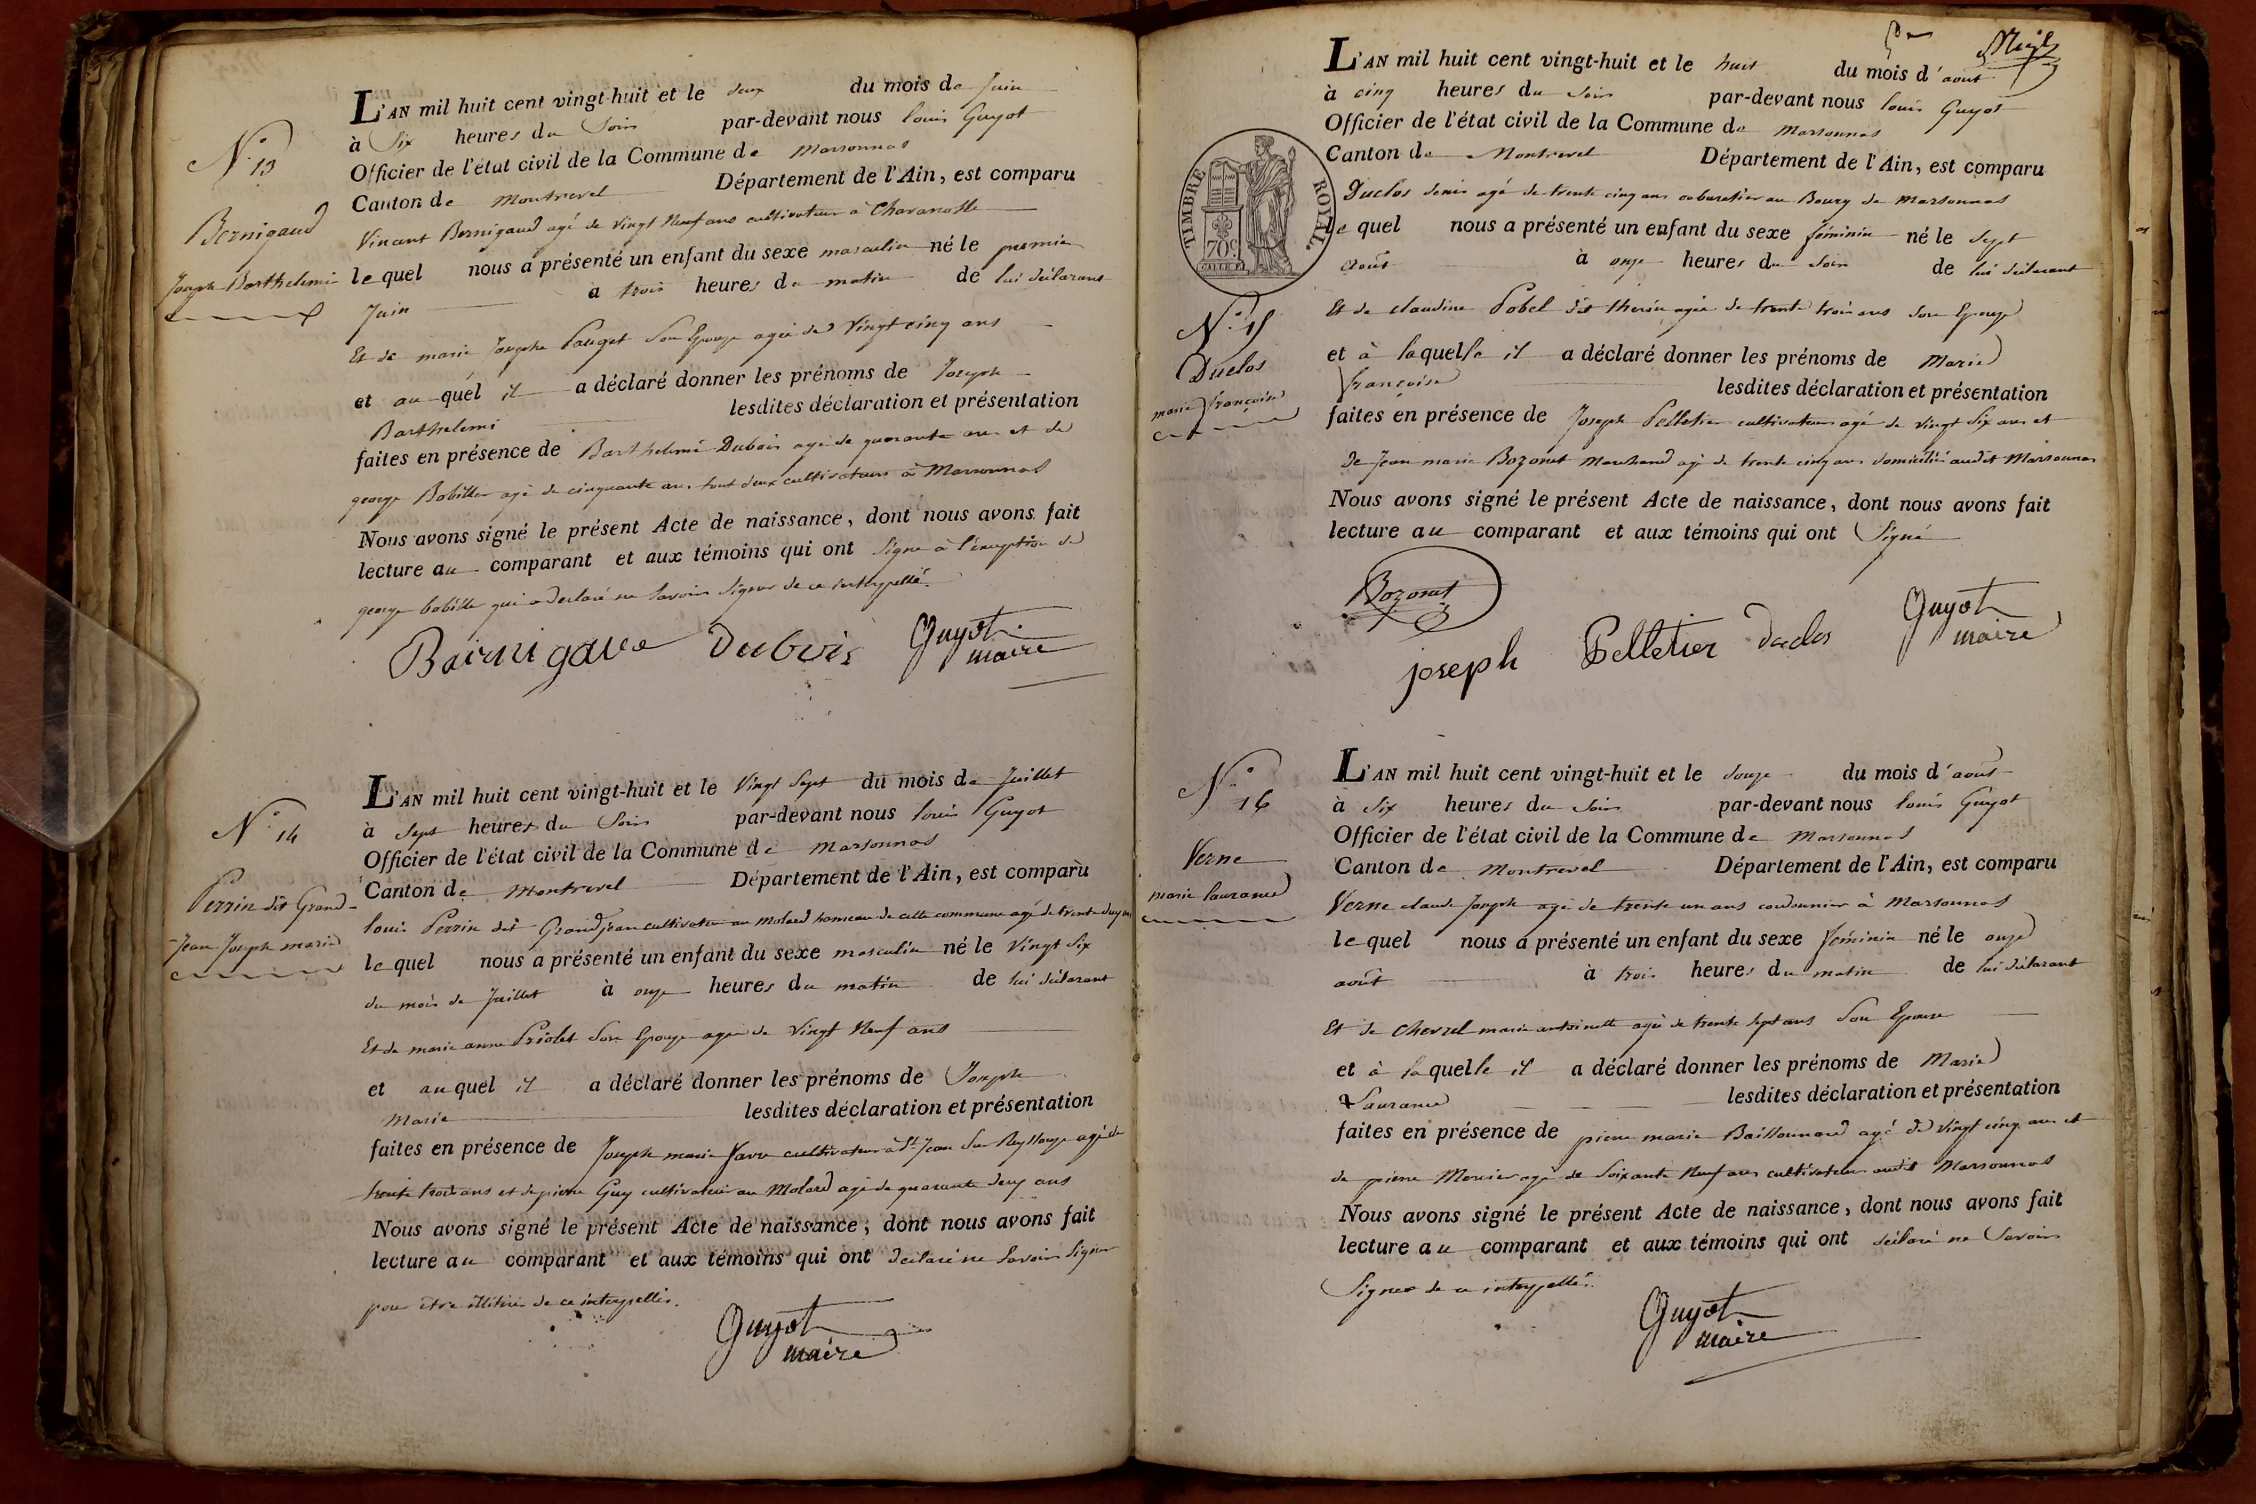 N.° 13
Bernigaud
Joseph Barthelemi
L'AN mil huit cent vingt-huit et le deux du mois de Juin
à Six heures du Soir par-devant nous louis Guyot
Officier de l'état civil de la Commune de marsonnas
Canton de montrevel Département de l'Ain, est comparu
Vincent Bernigaud agé de vingt Neuf ans cultivateur à Chavanosse
le quel nous a présenté un enfant du sexe masculin né le premier
Juin à trois heures du matin de lui déclarant
Et de marie Josephe Pauget Son Epouze agée de Vingt cinq ans
et au quel il a déclaré donner les prénoms de Joseph
Barthelemi lesdites déclaration et présentation
faites en présence de Barthelemi Dubois agé de quarante ans et de
george Bobillon agé de cinquante ans tout deux cultivateurs à Marsonnas
Nous avons signé le présent Acte de naissance, dont nous avons fait
lecture au comparant et aux témoins qui ont Signé à l'éxception de
george bobille qui a declaré ne Savoir Signer de ce interpellé.
Bairnigaue Dubois Guyot
maire
N.° 14
Perrin dit Grand-
Jean Joseph marie
L'AN mil huit cent vingt-huit et le Vingt Sept du mois de Juillet
à Sept heures du Soir par-devant nous louis Guyot
Officier de l'état civil de la Commune de marsonnas
Canton de montrevel Département de l'Ain, est comparu
louis Perrin dit Grandjean cultivateur au molard hameau de cette commune agé de trente deux ans
le quel nous a présenté un enfant du sexe masculin né le Vingt Six
du mois de Juillet à onze heures du matin de lui déclarant
Et de marie anne Priolet Son Epouze agée de Vingt Neuf ans
et au quel il a déclaré donner les prénoms de Joseph
Marie lesdites déclaration et présentation
faites en présence de Joseph marie favre cultivateur à St Jean Sur Reyssouze agé de
trente trois ans et de pierre Guy cultivateur au Molard agé de quarante deux ans
Nous avons signé le présent Acte de naissance, dont nous avons fait
lecture au comparant et aux témoins qui ont declaré ne Savoir Signer
pour être illitirés de ce interpellés.
Guyot
maire
TIMBRE ROYAL.
70c.
N.° 15
Duclos
marie françoise
L'AN mil huit cent vingt-huit et le huit du mois d'aout
à cinq heures du Soir par-devant nous louis Guyot
Officier de l'état civil de la Commune de marsonnas
Canton de Montrevel Département de l'Ain, est comparu
Duclos denis agé de trente cinq ans cabaretier au Bourg de marsonnas
le quel nous a présenté un enfant du sexe féminin né le Sept
Août à onze heures du Soir de lui déclarant
Et de claudine Pobel dit therin agée de trente trois ans Son Epouze
et à laquelle il a déclaré donner les prénoms de Marie
françoise lesdites déclaration et présentation
faites en présence de Joseph Pelletier cultivateur agé de vingt Six ans et
de Jean marie Bozonet Marchand agé de trente cinq ans domicilié audit Marsonnas
Nous avons signé le présent Acte de naissance, dont nous avons fait
lecture au comparant et aux témoins qui ont Signé
Bozonet
joseph Pelletier duclos Guyot
maire
N.° 16
Verne
marie laurance
L'AN mil huit cent vingt-huit et le douze du mois d'août
à Six heures du Soir par-devant nous louis Guyot
Officier de l'état civil de la Commune de Marsonnas
Canton de Montrevel Département de l'Ain, est comparu
Verne claude Joseph agé de trente un ans cordonnier à Marsonnas
le quel nous a présenté un enfant du sexe féminin né le onze
août à trois heures du matin de lui déclarant
Et de Chevrel marie antoinette agée de trente Sept ans Son Epouse
et à laquelle il a déclaré donner les prénoms de Marie
Laurance lesdites déclaration et présentation
faites en présence de pierre marie Baillonnard agé de vingt cinq ans et
de pierre Mercier agé de Soixante Neuf ans cultivateurs audit Marsonnas
Nous avons signé le présent Acte de naissance, dont nous avons fait
lecture au comparant et aux témoins qui ont déclaré ne Savoir
Signer de ce interpellés.
Guyot
maire